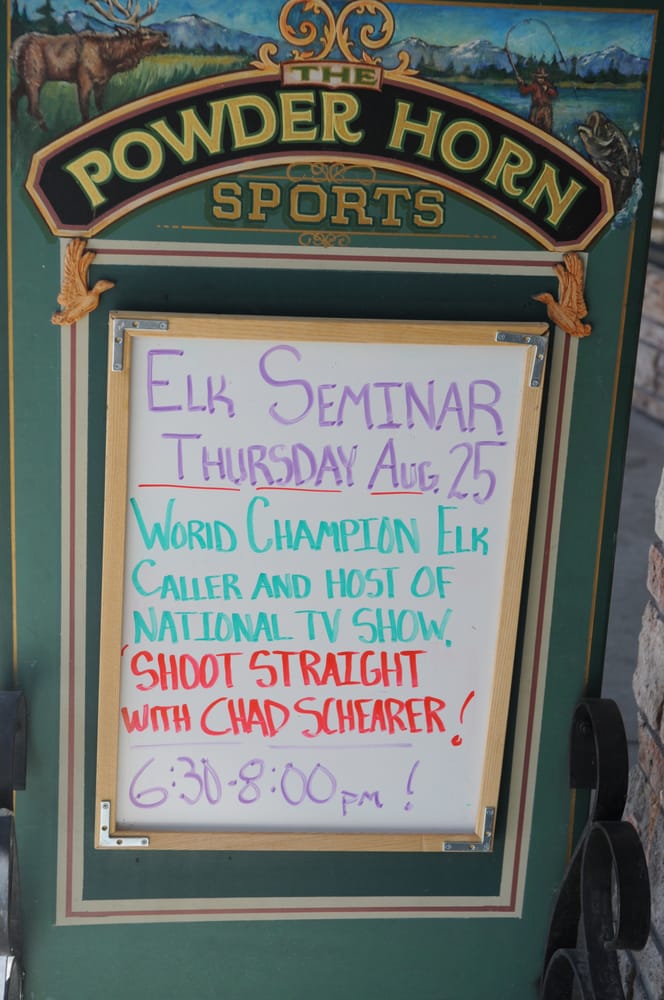 THE
POWDER HORN
SPORTS
ELK SEMINAR
THURSDAY AUG. 25
WORLD CHAMPION ELK
CALLER AND HOST OF
NATIONAL TV SHOW.
'SHOOT STRAIGHT
WITH CHAD SCHEARER!
6:30-8:00 PM !